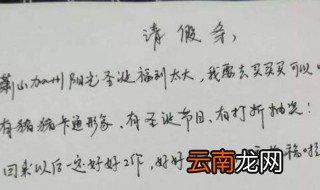 请假条,
萧山加州阳光圣诞福利太大,我要去买买买可以
有猪猪卡通形象,有圣诞节目,有打折抽奖!
回来以后一定好好工作,好好
云南龙网